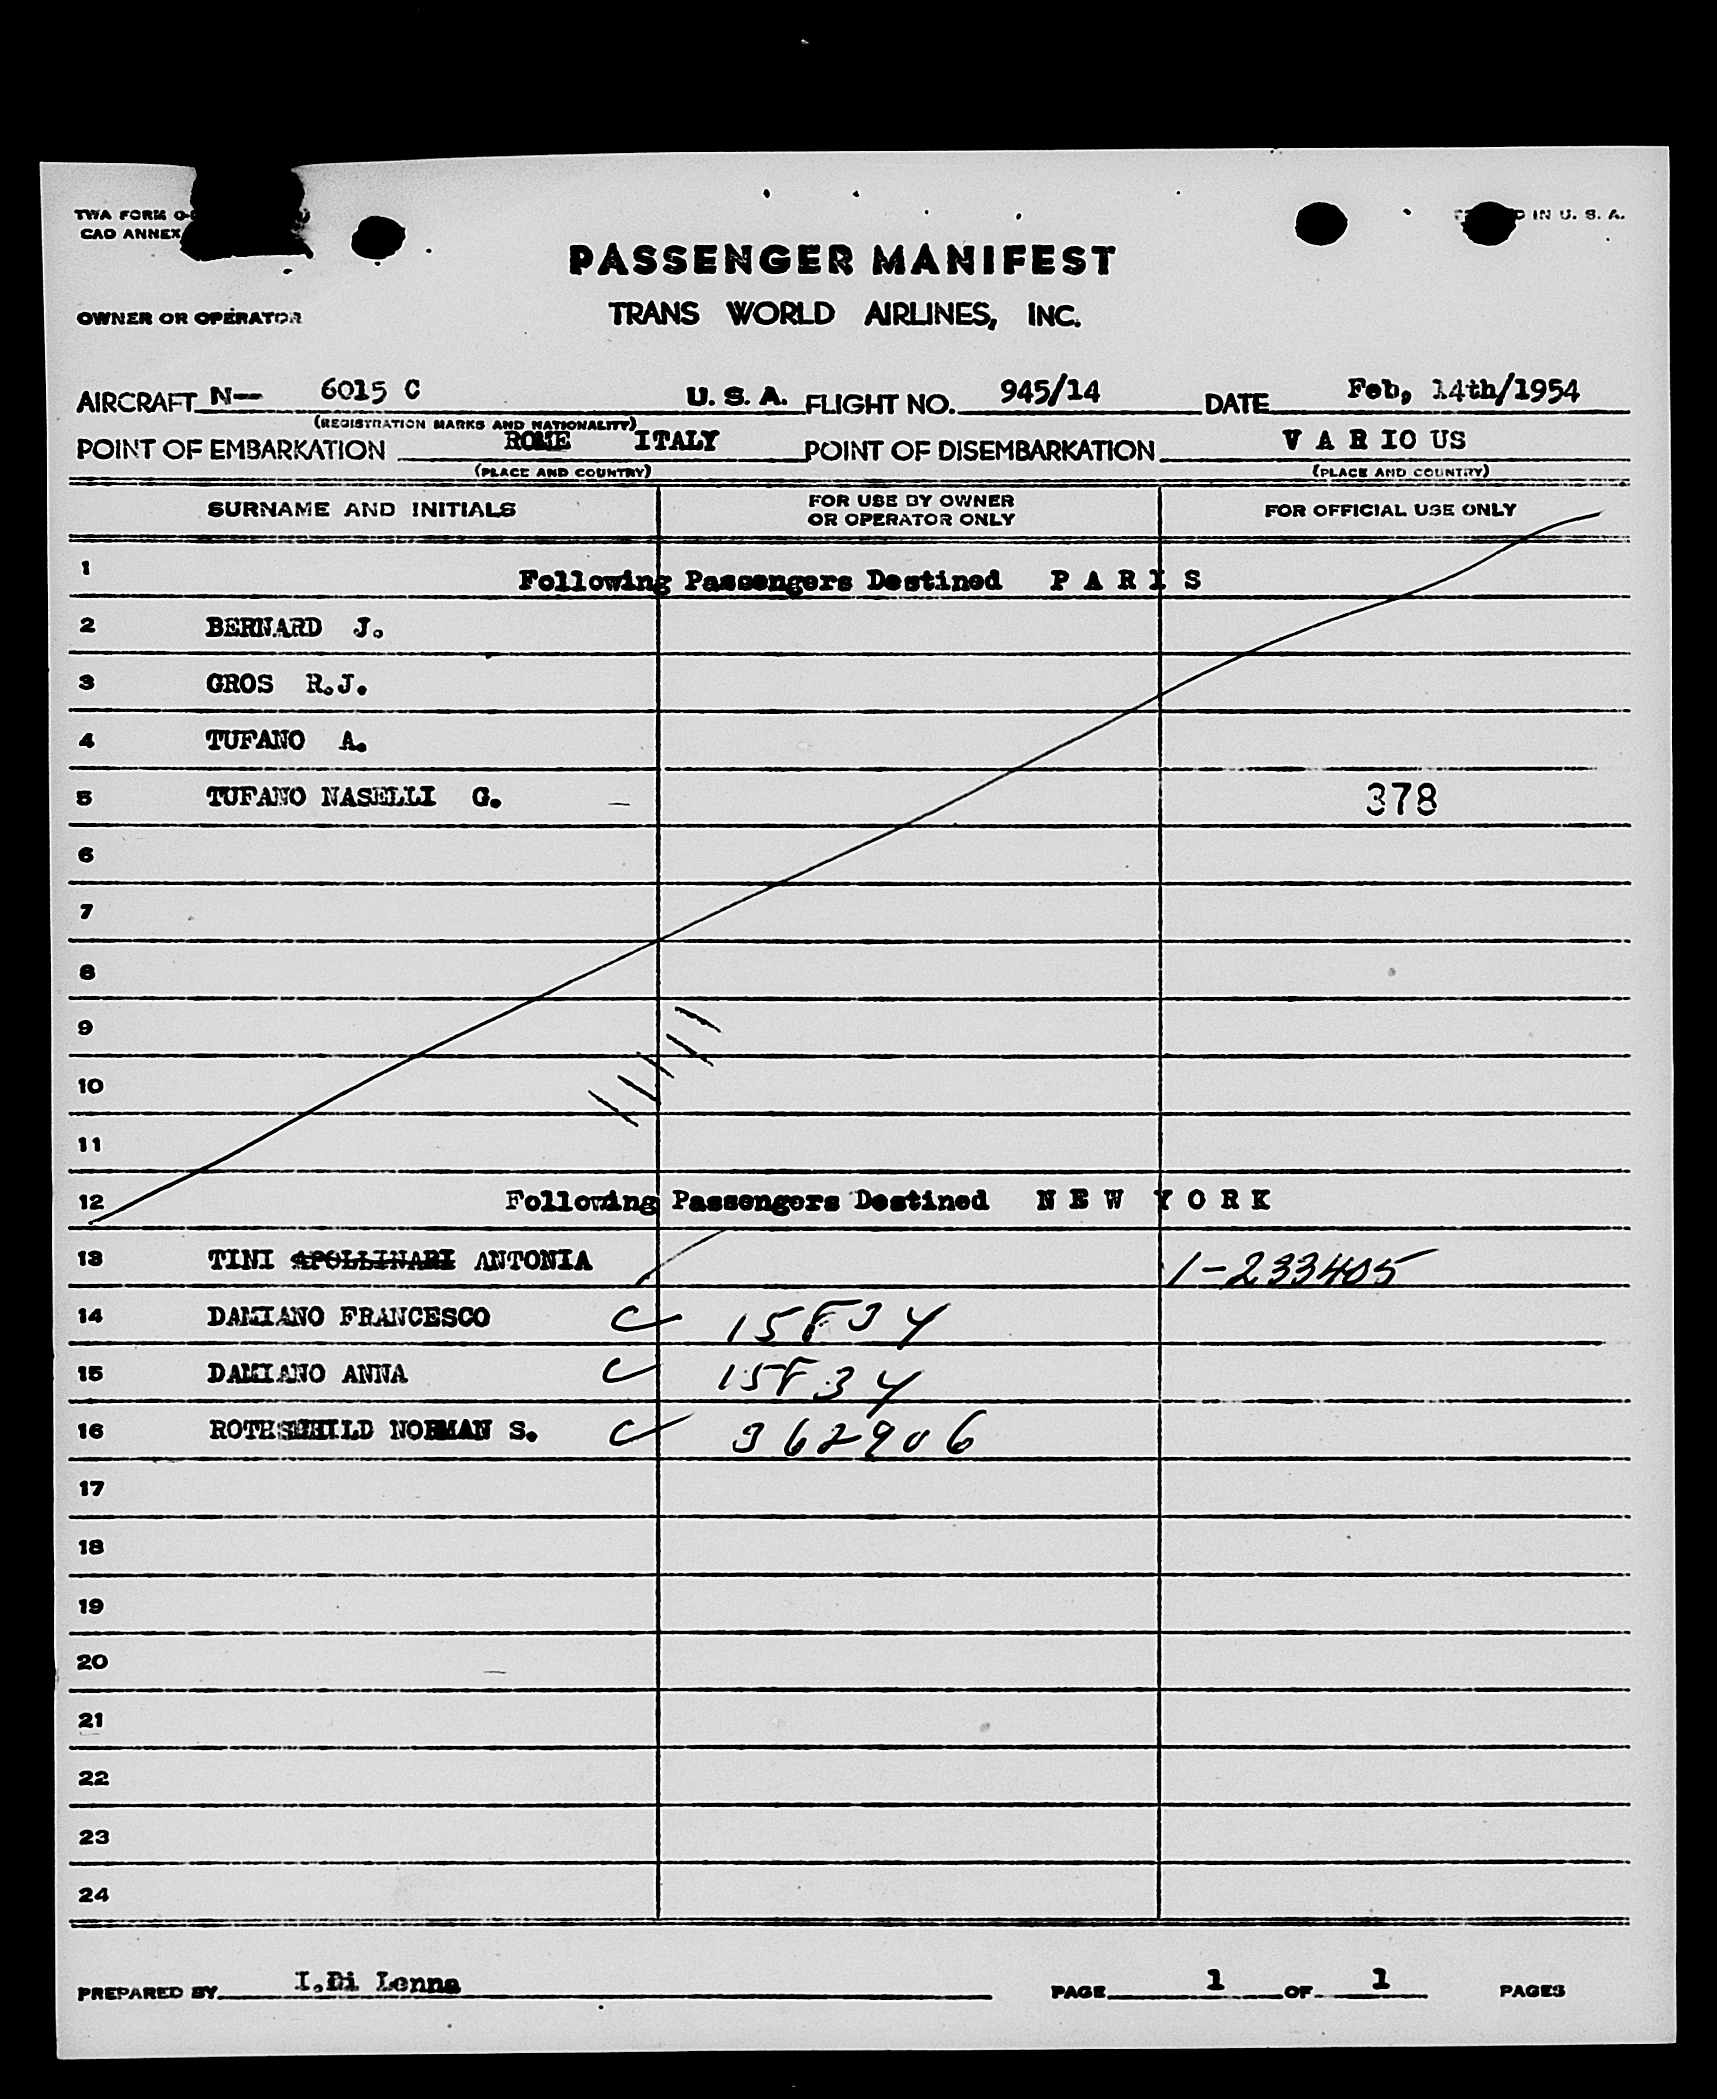 TWA FORM O-
CAO ANNEX
D IN U. S. A.
PASSENGER MANIFEST
OWNER OR OPERATOR
TRANS WORLD AIRLINES, INC.
AIRCRAFT N— 6015 C U. S. A. FLIGHT NO. 945/14 DATE Feb, 14th/1954
(REGISTRATION MARKS AND NATIONALITY)
POINT OF EMBARKATION ROME ITALY POINT OF DISEMBARKATION V A R IO US
(PLACE AND COUNTRY) (PLACE AND COUNTRY)
SURNAME AND INITIALS FOR USE BY OWNER OR OPERATOR ONLY FOR OFFICIAL USE ONLY
1 Following Passengers Destined P A R I S
2 BERNARD J.
3 GROS R.J.
4 TUFANO A.
5 TUFANO NASELLI G. 378
6
7
8
9
10
11
12 Following Passengers Destined N E W Y O R K
13 TINI APOLLINARI ANTONIA 1-233405
14 DAMIANO FRANCESCO C 15F34
15 DAMIANO ANNA C 15F34
16 ROTHSCHILD NORMAN S. C 362906
17
18
19
20
21
22
23
24
PREPARED BY I.Di Lenna PAGE 1 OF 1 PAGES